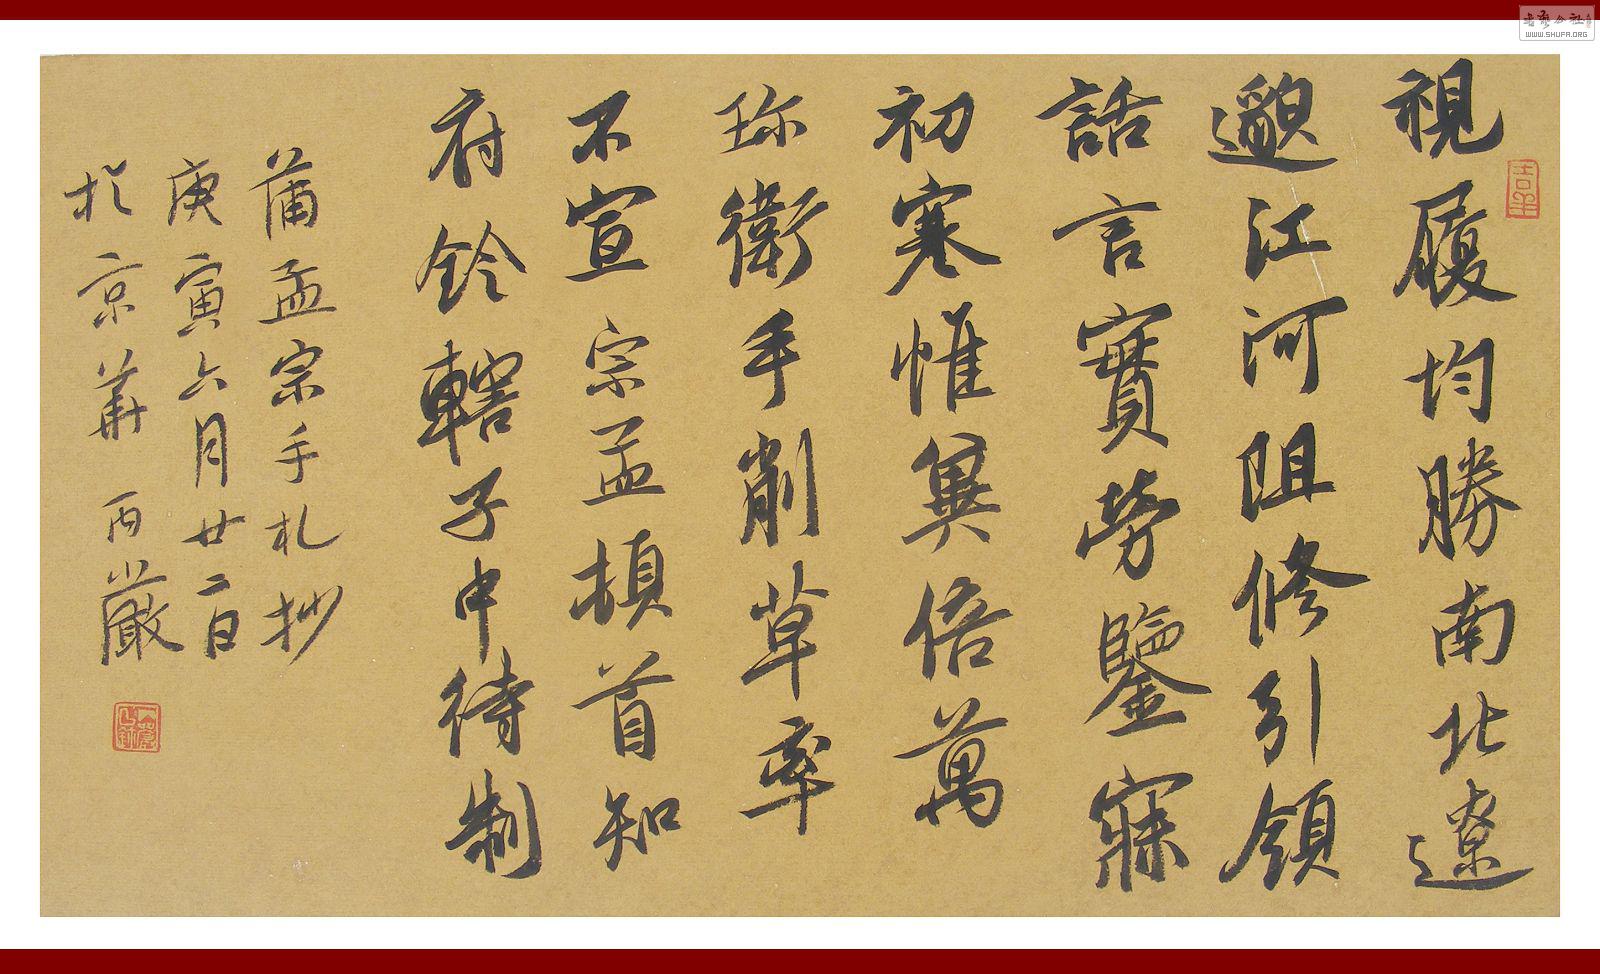 視履均勝南北遼
邈江河阻修引領
話言實勞鑒寐
初寒惟冀倍萬
珎衛手削草率
不宣宗孟頓首知
府鈐轄子中待制
蒲孟宗手札抄
庚寅六月廿二日
於京華丙嚴
書藝公社
WWW.SHUFA.ORG